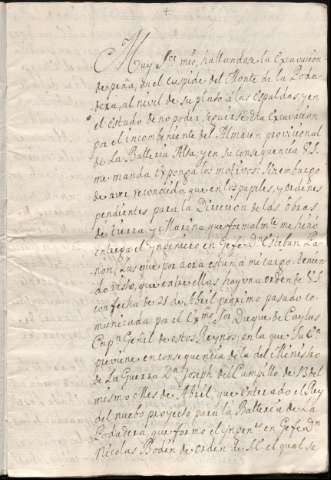 Muy Sor mio, hallandose la Excavacion
de peña, en el Cuspide del Monte de la Poda
dera, al nivel de su plaso a las Espaldas, y en
el Estado de no poder seguirse la Excavacion
por el incombeniente del Almacen provisional
de La Batteria Alta, y en su consequencia V.S.
me manda exponga los motivos: Sin embargo
de aver reconocido, que en los papeles, y ordenes
pendientes para la Direccion de las obras
de tierra, y Marina, que formalmte me hizo
entrega el Yngeniero en Gefe Dn Esteban Pa
ñon, Las que por aora están a mi cargo; he vien
do visto, que entre ellas hay una orden de V.S.
con fecha de 21 de Abril proximo pasado co
municada por el Exmo Sor Duque de Caylus
Capn Genl de estos Reynos, en la que Su Ex
previene en consequencia de la del Ministro
de La Guerra Dn Joseph del Campillo de 13 del
mismo Mes de Abril, que enterado el Rey
del nuebo proyecto para la Batteria de La
Podadera, que formo el Yngenro en Gefe Dn
Nicolas Bodin de orden de el qual se